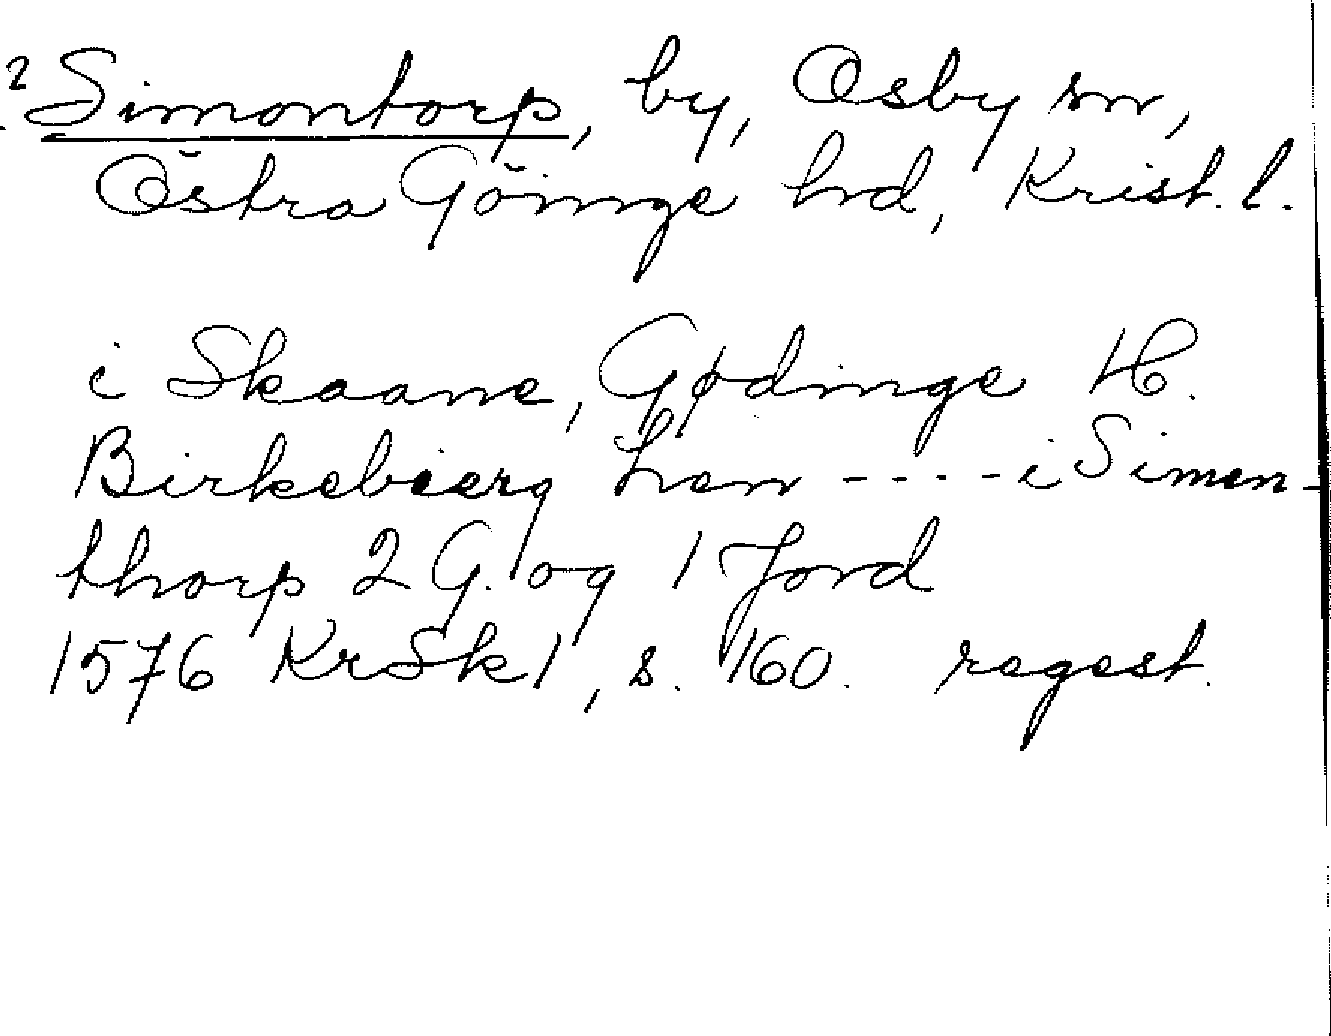 2 Simontorp, by, Osby sn,
Östra Göinge hd, Krist. l.
i Skaane, Gødinge H.
Birkebierg Len - - - - i Simen-
thorp 2 G. og 1 Jord
1576 KrSk 1, s. 160. regest.